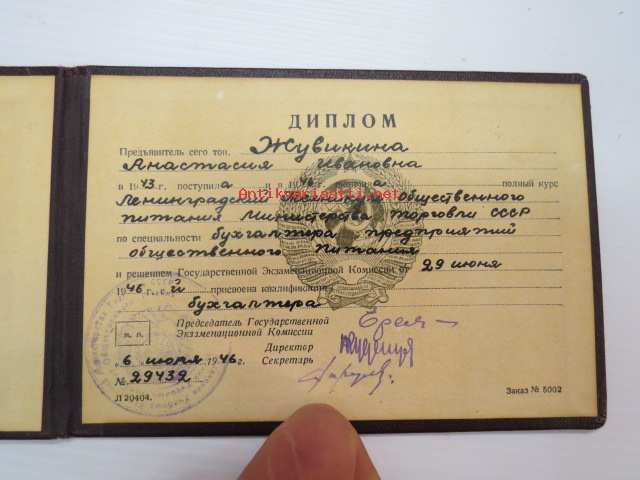 ДИПЛОМ
Предъявитель сего тов. Жувикина
Анастасия Ивановна
в 1943.г. поступила в и в 1946 а полный курс
Ленинградский общественного
питания Министерства торговли СССР
по специальности бухгалтера предприятий
общественного питания
и решением Государственной Экзаменационной Комиссии от 29 июня
1946 г. ей присвоена квалификация
бухгалтера
Председатель Государственной
Экзаменационной Комиссии
м. п.
Директор
6 июля 1946г. Секретарь
№ 29439
Л 20404. Заказ № 5002
Antikvariaatti.net